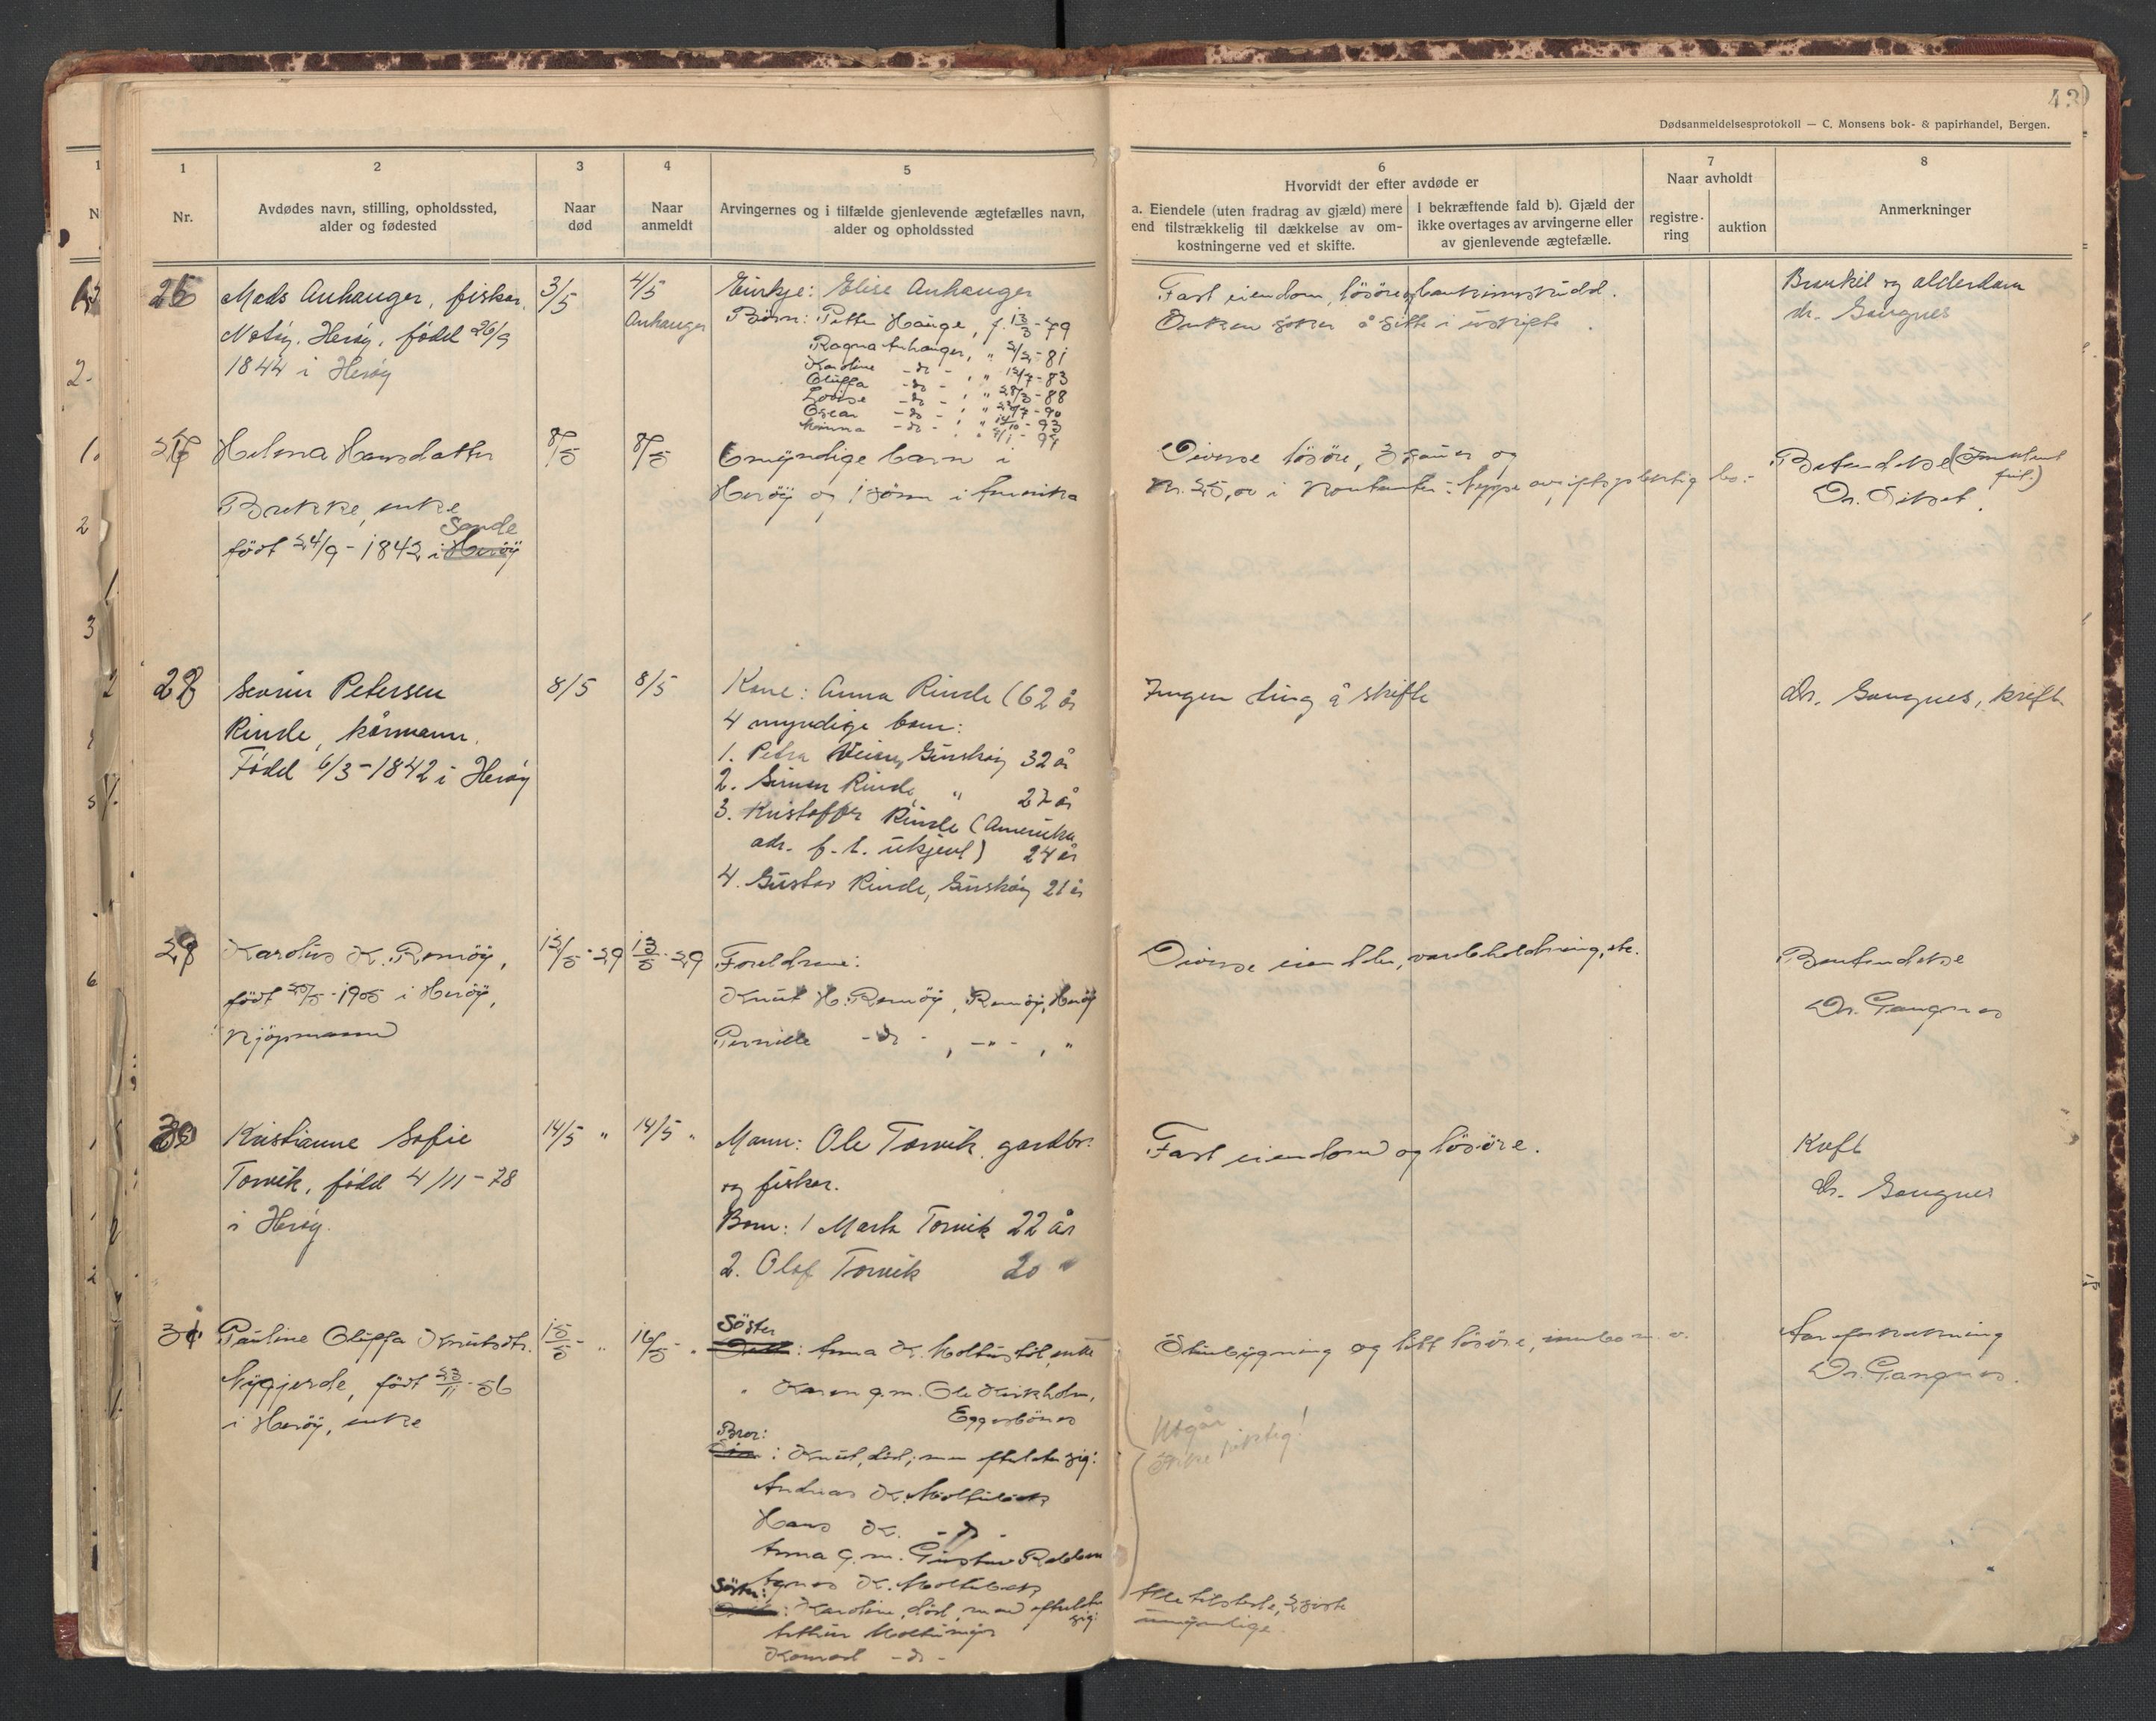 43
Dødsanmeldelsesprotokoll — C. Monsens bok- & papirhandel, Bergen.
1
2
3
4
5
6
7
8
Nr.
Avdødes navn, stilling, opholdssted,
alder og fødested
Naar
død
Naar
anmeldt
Arvingernes og i tilfælde gjenlevende ægtefælles navn,
alder og opholdssted
Hvorvidt der efter avdøde er
a. Eiendele (uten fradrag av gjæld) mere
end tilstrækkelig til dækkelse av om-
kostningerne ved et skifte.
I bekræftende fald b). Gjæld der
ikke overtages av arvingerne eller
av gjenlevende ægtefælle.
Naar avholdt
registre-
ring
auktion
Anmerkninger
Mads Anhauger, fisker,
Herøy, født 26/9
1844 i Herøy
3/5
4/5
Anhauger
Enkje: Elise Anhauger
Børn: Petter Hauge, f. 13/3-79
Ragna Anhauger, " -81
Karoline -do- , " 12/7-83
Oluffa -do- , " -88
Lovise -do- , " -90
Oscar -do- , " -93
-do- , " -97
Fast eiendom, løsøre og
Enken å sitte i uskifte.
og alderdom
dr. Gangnes
Helena Hansdatter
Brekke, enke
født 24/9-1842 i Herøy
Sande
8/5
8/5
6 myndige barn i
Herøy og 1 sønn i Amerika
Diverse løsøre, 3 sauer og
kr. 25,00 i kontanter:
Dr.
28
Sevrin Petersen
Rinde, kårmann.
Født 6/3-1842 i Herøy
8/5
8/5
Kone: Anna Rinde (62 år
4 myndige born:
1. Petra Gurskøy 32 år
2. Simon Rinde " 27 år
3. Kristoffer Rinde (Amerika
adr. f. t. ukjent) 24 år
4. Gustav Rinde, Gurskøy 21 år
Ingen ting å skifte
dr. Gangnes, kreft
Karolus K. Remøy,
født -1905 i Herøy,
kjøpmann
12/5-29
13/5-29
Foreldrene:
Knut H. Remøy, Remøy, Herøy
Pernille -do- , -"- , "
Diverse eiendeler, varebeholdning, etc.
Dr. Gangnes
30
Kristianne Sofie
Torvik, født 4/11-78
i Herøy.
14/5 "
14/5 "
Mann: Ole Torvik, gardbr.
og fisker.
Born: 1 Marta Torvik 22 år
2. Olaf Torvik 20 "
Fast eiendom og løsøre.
Kreft
dr. Gangnes
31
Pauline Oluffa Knutsdtr.
Nygjerde, født 23/11-56
i Herøy, enke
15/5 - "
16/5 - "
Søster
: Anna K. Moltustøl, enke
" Karen g.m. Ole Kirkholm,
Eggesbønes
Bror:
: Knut, død, men efterlater sig:
Andreas K. Moltubak
Hans K. -do-
Anna g.m. Gustav
Agnes K. Moltubak
Søster:
: Karoline, død, men efterlater
sig:
Moltumyr
Konrad -do-
Stuebygning og litt løsøre,
Utgår
Ikke riktig!
Alle tilstede, 2 siste
umyndige.
Dr. Gangnes.